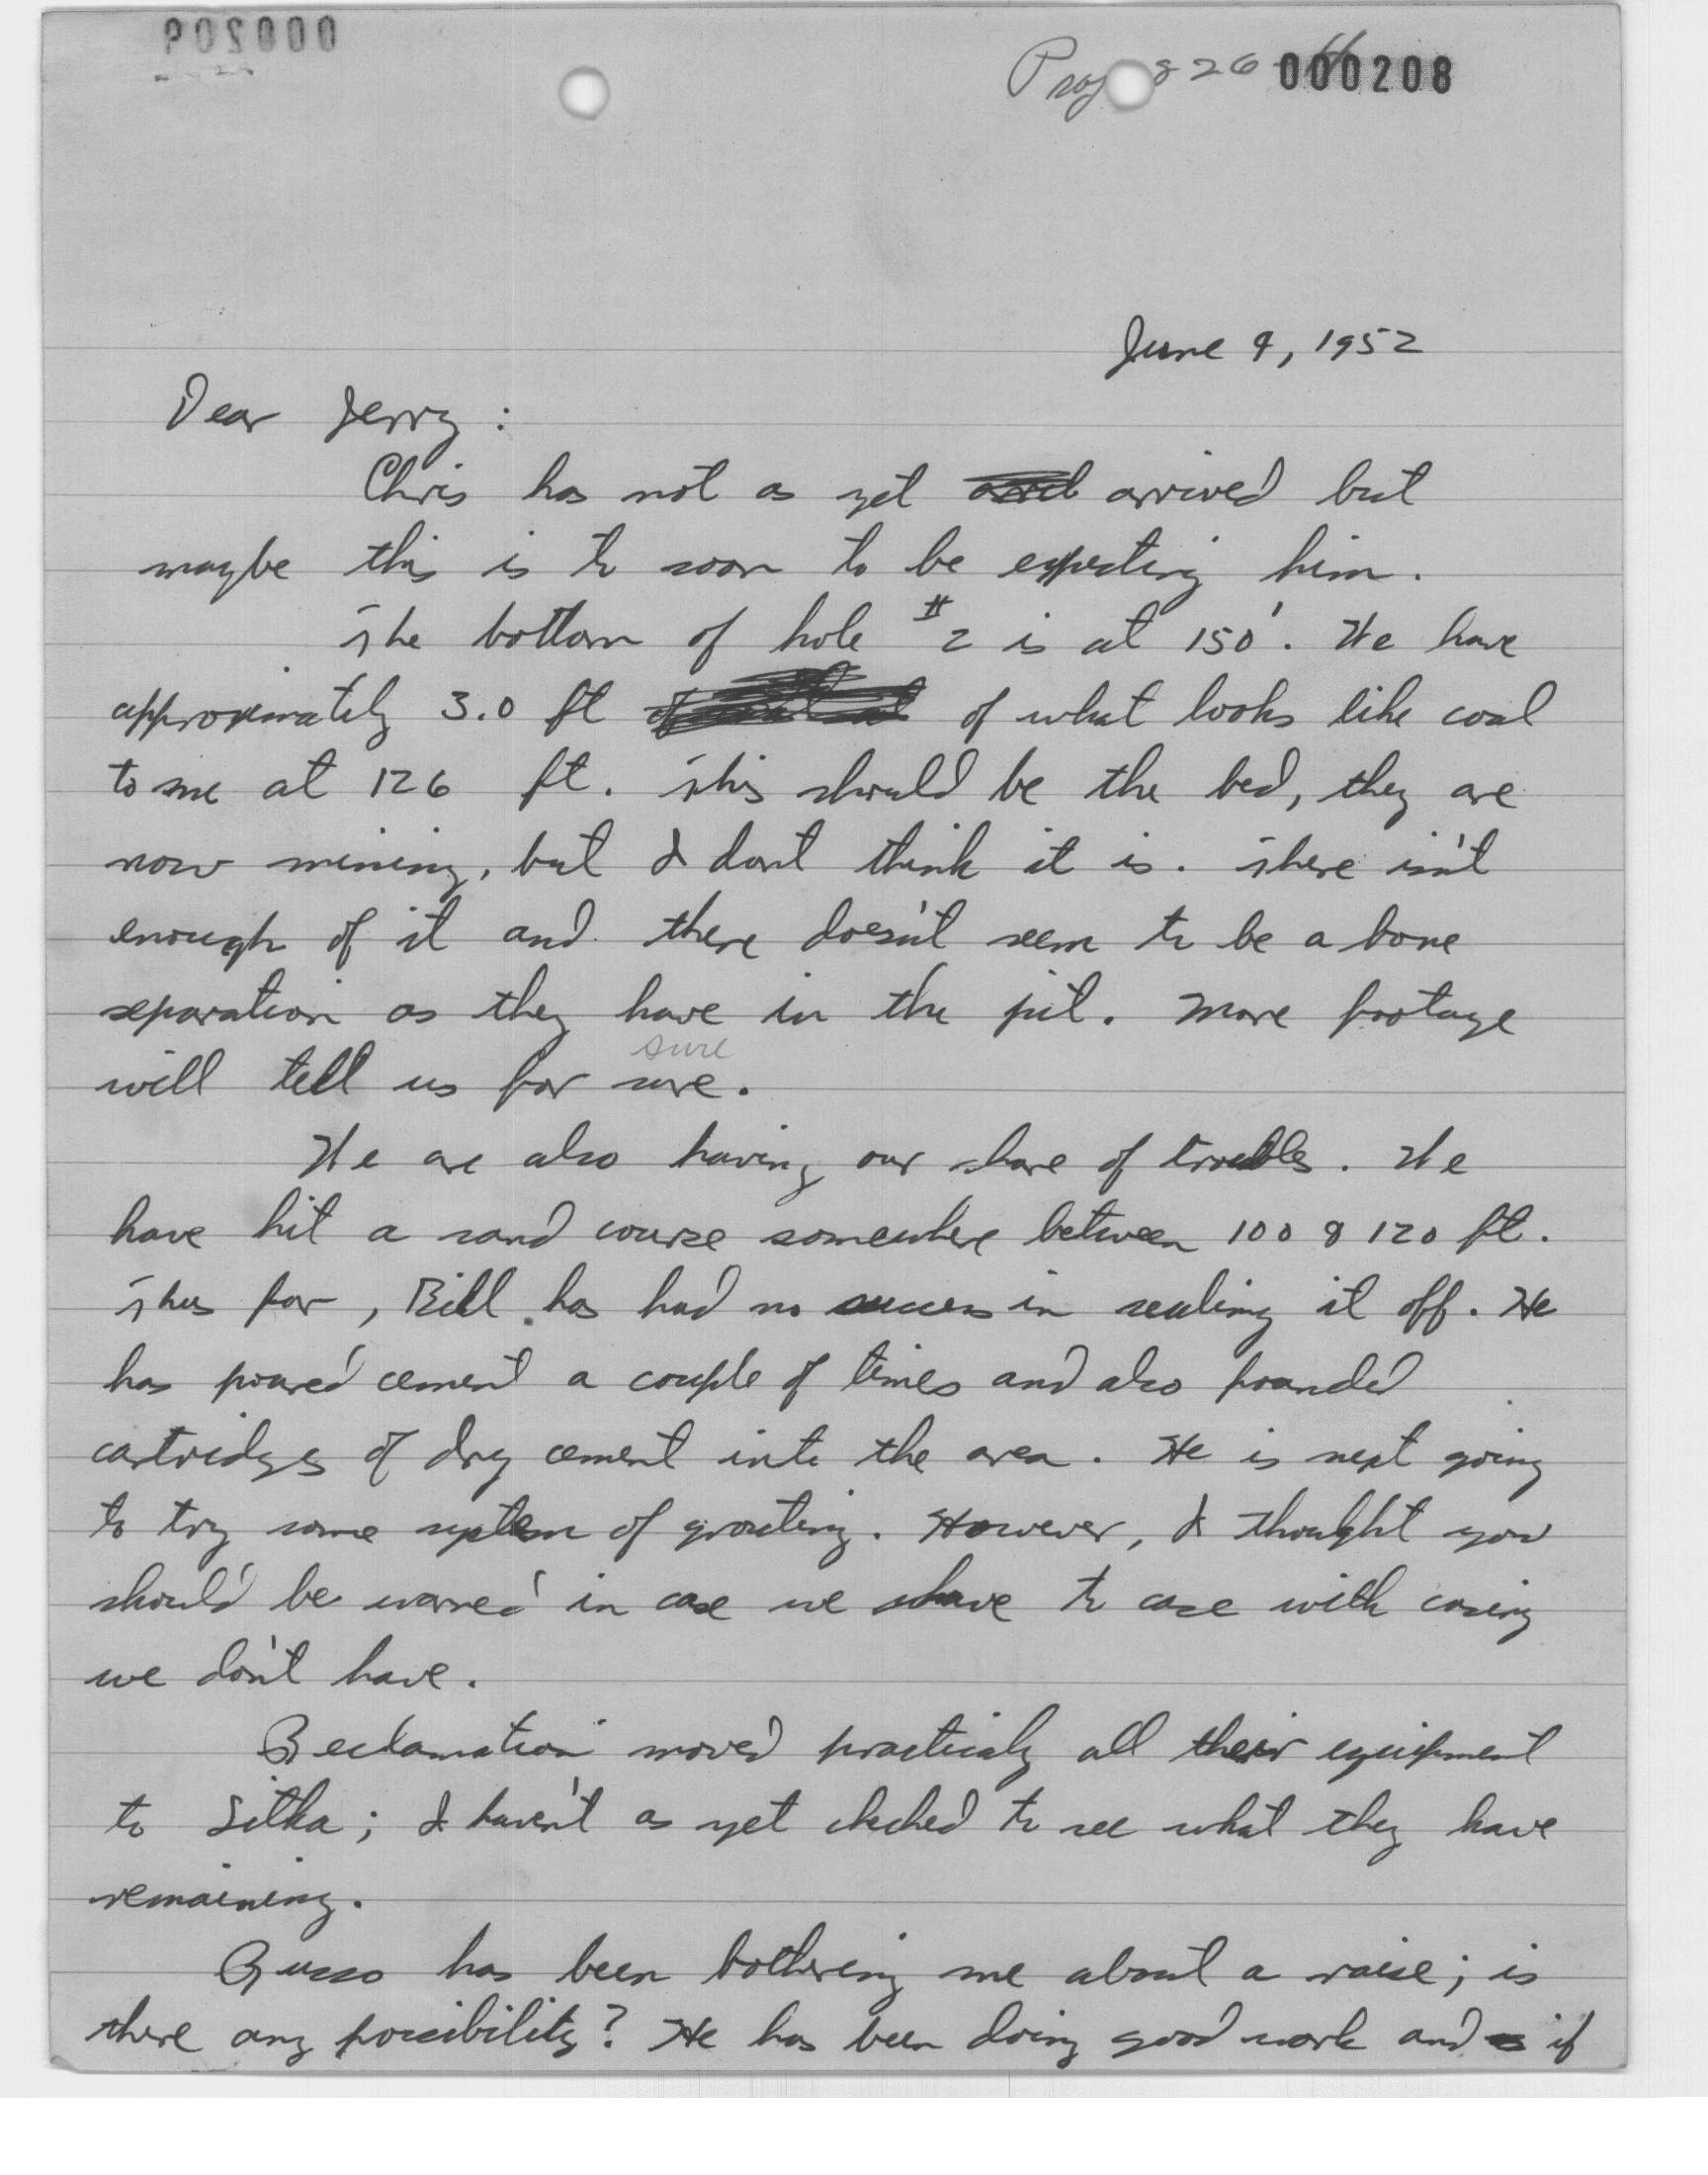 Proj 826 000208
June 9, 1952
Dear Jerry:
Chris has not as yet arrived but
maybe this is to soon to be expecting him.
The bottom of hole #2 is at 150'. We have
approximately 3.0 ft of what looks like coal
to me at 126 ft. This should be the bed, they are
now mining, but I dont think it is. There isn't
enough of it and there doesn't seem to be a bone
separation as they have in the pit. More footage
sure
will tell us for sure.
We are also having our share of troubles. We
have hit a sand course somewhere between 100 & 120 ft.
Thus far, Bill has had no success in sealing it off. He
has poured cement a couple of times and also pounded
cartridges of dry cement into the area. He is next going
to try some system of grouting. However, I thought you
should be warned in case we have to case with casing
we don't have.
Reclamation moved practicaly all their equipment
to Sitka; I haven't as yet checked to see what they have
remaining.
Russo has been bothering me about a raise; is
there any possibility? He has been doing good work and if